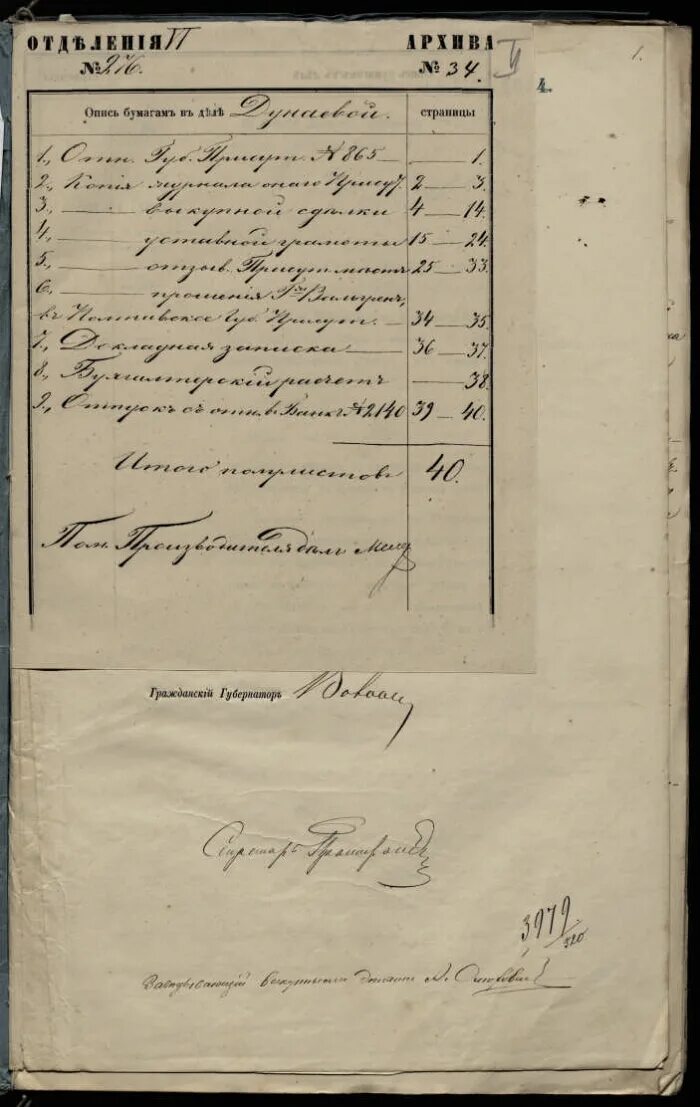 ОТДѢЛЕНІЯ VI АРХИВА
№ 276. № 34. VI
1.
4.
Опись бумагамъ въ дѣлѣ Дунаевой. страницы
1., Отн. Губ. Присут. № 865 — — 1.
2., Копія журнала онаго Присут. 2 — 3.
3., — выкупной сдѣлки 4 — 14.
4., — уставной грамоты 15 — 24.
5., — отзыв. Присут. 25 — 33.
6., — прошенія
въ Полтавское Губ. Присут. — 34 — 35.
7., Докладная записка — 36 — 37.
8., Бухгалтерскій расчетъ — 38.
9., Отпускъ съ отн. въ Банкъ № 2140 39 — 40.
Итого полулистовъ 40.
Пом. Производителя дѣлъ
Гражданскій Губернаторъ
Секретарь
3979
320
Завѣдывающій выкупными дѣлами